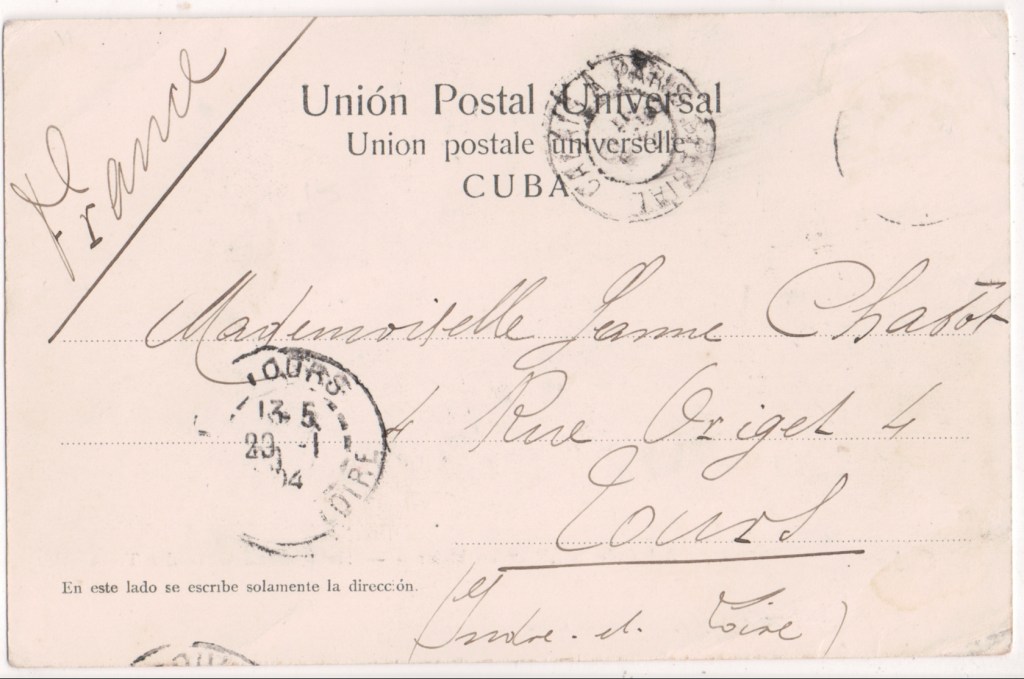 France
Unión Postal Universal
Union postale universelle
CUBA
CALAIS A PARIS
Mademoiselle Jeanne Chabot
4 Rue Origet 4
Tours
(Indre-et-Loire)
TOURS
13 5
29 -1
04
LOIRE
En este lado se escribe solamente la dirección.